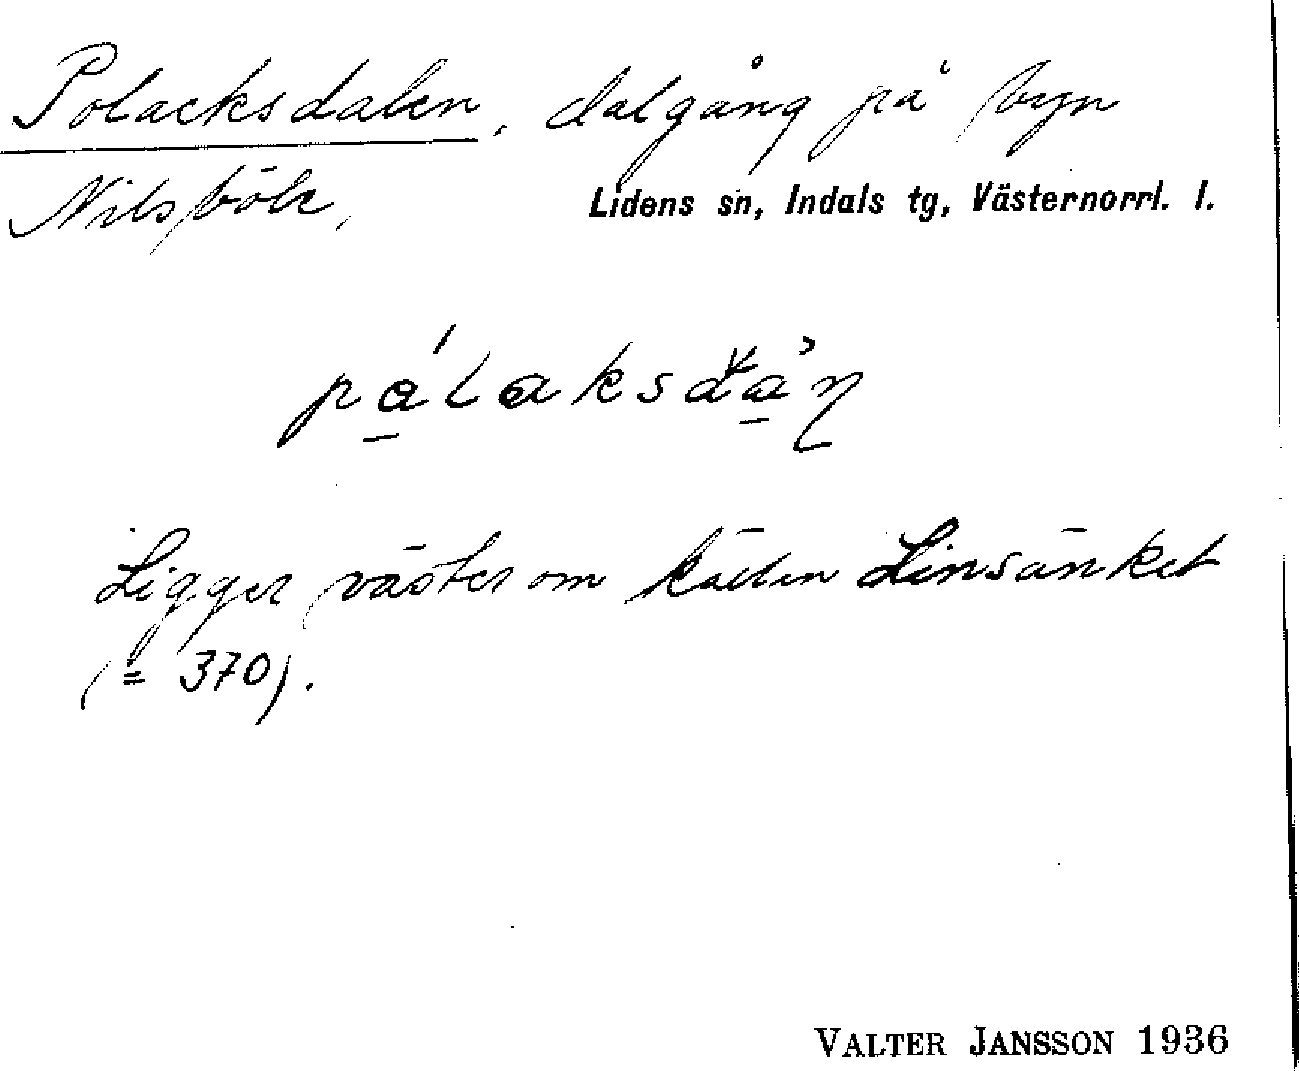 Polacksdalen, dalgång på byn
Nilsböle, Lidens sn, Indals tg, Västernorrl. l.
Ligger väster om källan Linsänket
(= 370).
VALTER JANSSON 1936